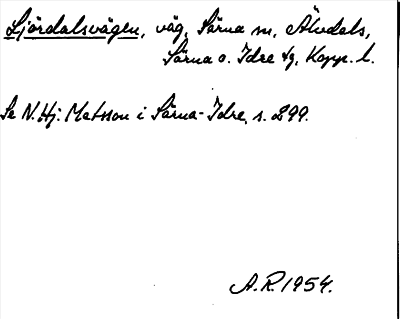 Ljördalsvägen, väg, Särna sn, Älvdals,
Särna o. Idre tg, Kopp. l.
Se N. Hj. Matsson i Särna-Idre, s. 299.
A.R. 1954.